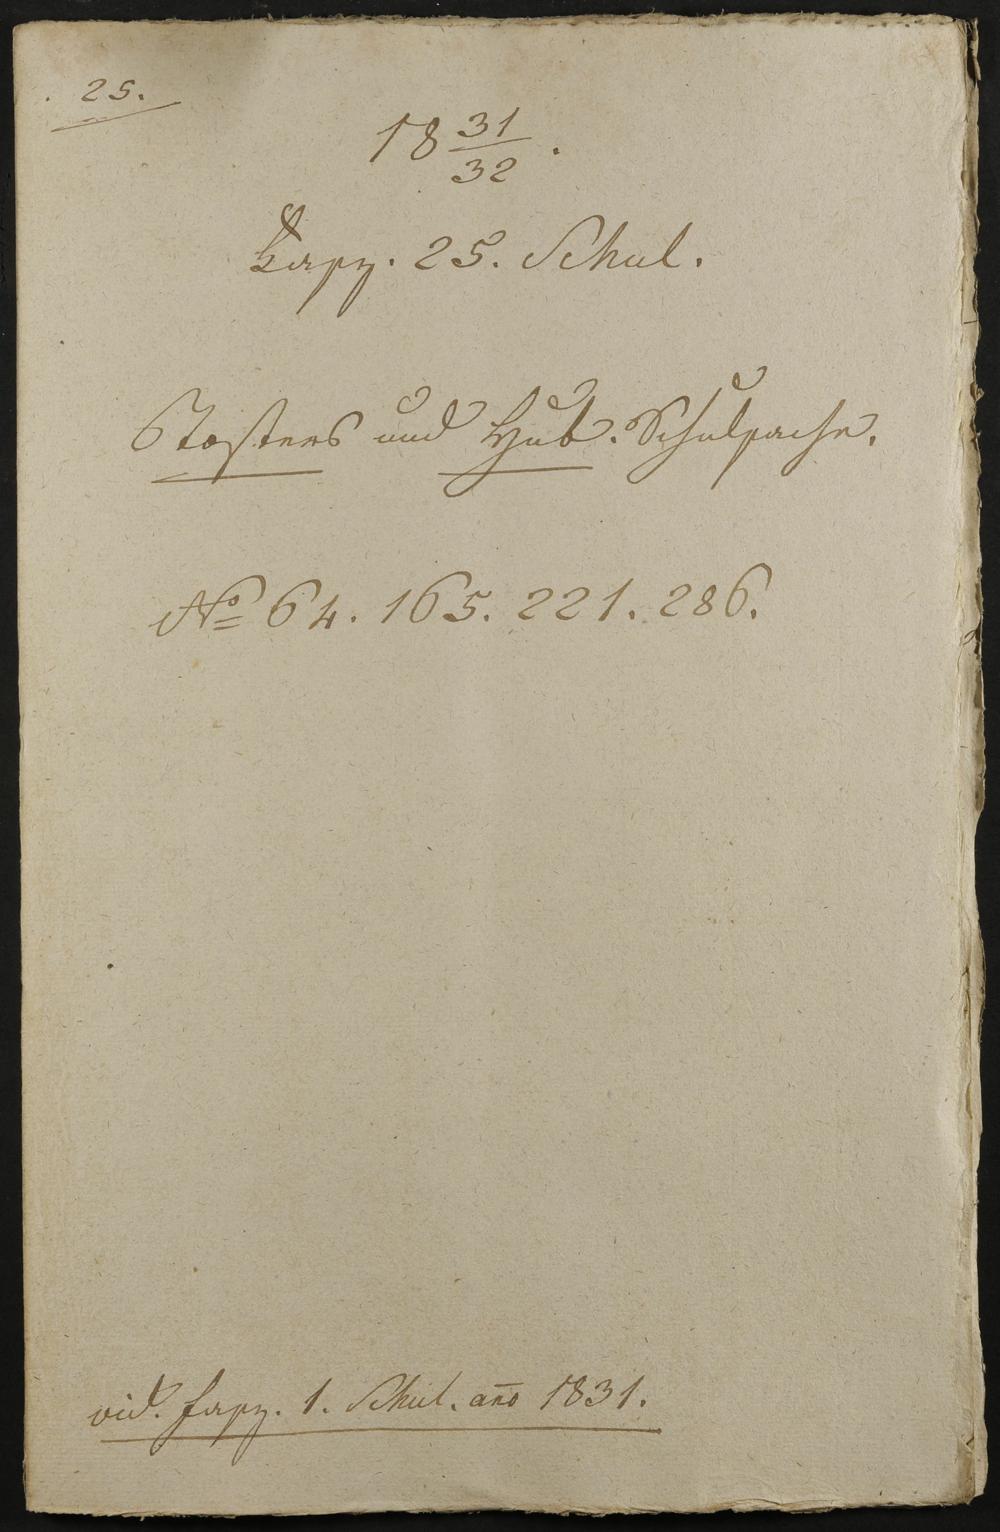 25.
18 31/32.
Fasz. 25. Schul.
Tosters und Hub. Schulsache.
No 64. 165. 221. 286.
vid. fasz. 1. Schul. año 1831.